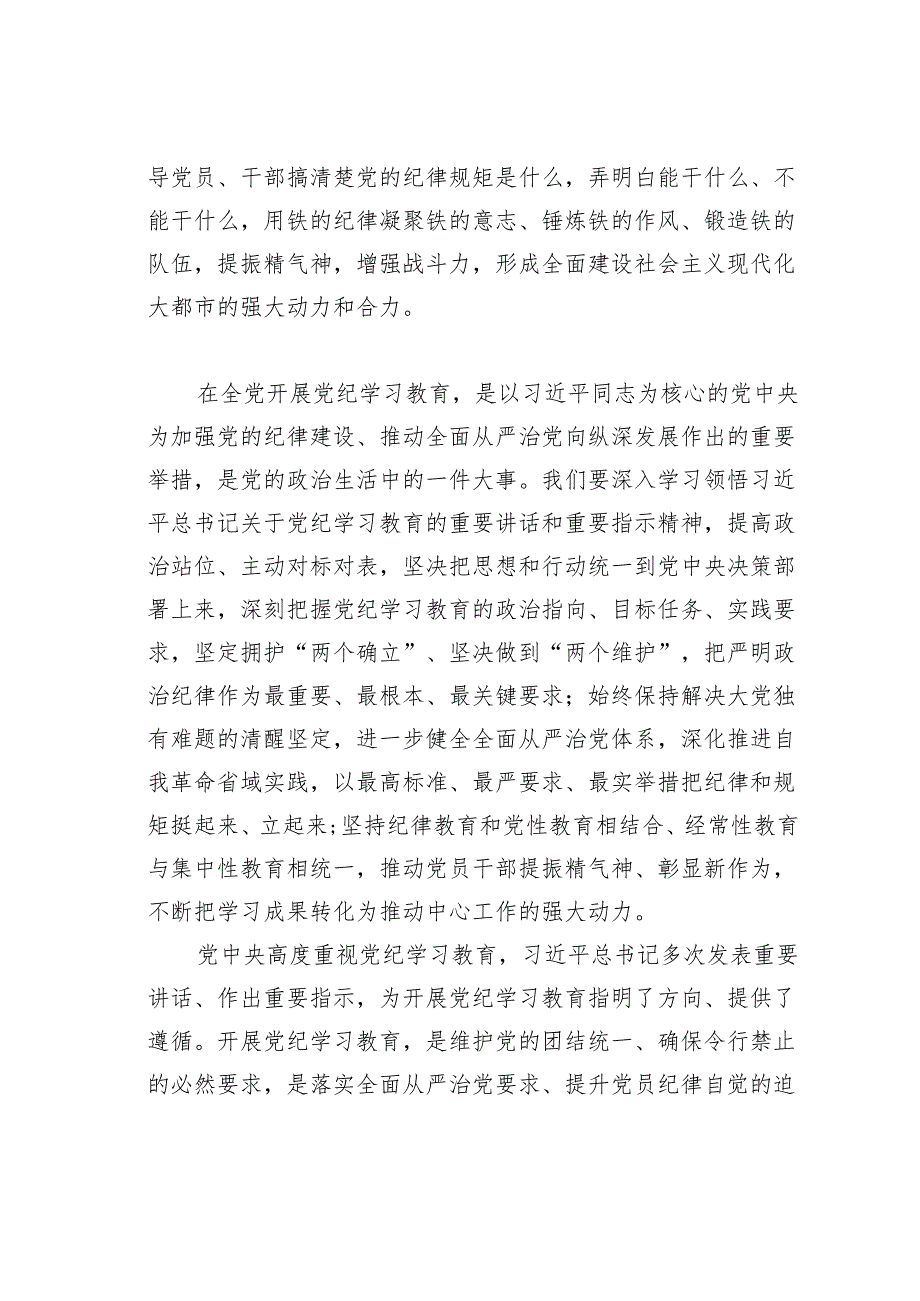 导党员、干部搞清楚党的纪律规矩是什么，弄明白能干什么、不
能干什么，用铁的纪律凝聚铁的意志、锤炼铁的作风、锻造铁的
队伍，提振精气神，增强战斗力，形成全面建设社会主义现代化
大都市的强大动力和合力。
在全党开展党纪学习教育，是以习近平同志为核心的党中央
为加强党的纪律建设、推动全面从严治党向纵深发展作出的重要
举措，是党的政治生活中的一件大事。我们要深入学习领悟习近
平总书记关于党纪学习教育的重要讲话和重要指示精神，提高政
治站位、主动对标对表，坚决把思想和行动统一到党中央决策部
署上来，深刻把握党纪学习教育的政治指向、目标任务、实践要
求，坚定拥护“两个确立”、坚决做到“两个维护”，把严明政
治纪律作为最重要、最根本、最关键要求；始终保持解决大党独
有难题的清醒坚定，进一步健全全面从严治党体系，深化推进自
我革命省域实践，以最高标准、最严要求、最实举措把纪律和规
矩挺起来、立起来;坚持纪律教育和党性教育相结合、经常性教育
与集中性教育相统一，推动党员干部提振精气神、彰显新作为，
不断把学习成果转化为推动中心工作的强大动力。
党中央高度重视党纪学习教育，习近平总书记多次发表重要
讲话、作出重要指示，为开展党纪学习教育指明了方向、提供了
遵循。开展党纪学习教育，是维护党的团结统一、确保令行禁止
的必然要求，是落实全面从严治党要求、提升党员纪律自觉的迫